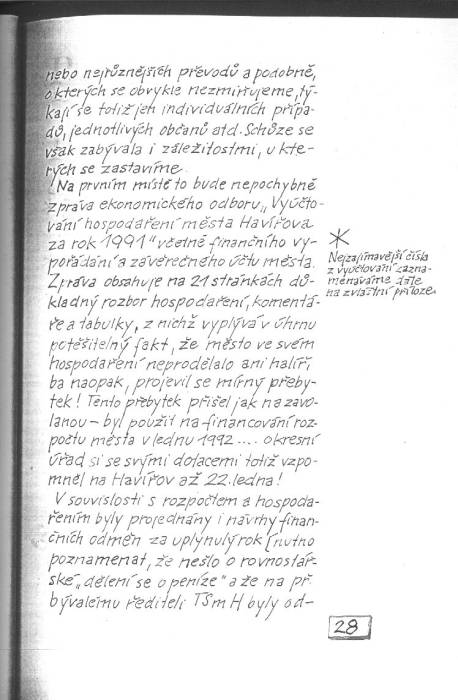 nebo nejrůznějších převodů a podobně,
o kterých se obvykle nezmiňujeme, tý-
kají se totiž jen individuálních přípa-
dů, jednotlivých občanů atd. Schůze se
však zabývala i záležitostmi, u kte-
rých se zastavíme.
Na prvním místě to bude nepochybně
zpráva ekonomického odboru „Vyúčto-
vání hospodaření města Havířova
za rok 1991" včetně finančního vy-
pořádání a závěrečného účtu města.
Zpráva obsahuje na 21 stránkách dů-
kladný rozbor hospodaření, komentá-
ře a tabulky, z nichž vyplývá v úhrnu
potěšitelný fakt, že město ve svém
hospodaření neprodělalo ani halíř,
ba naopak, projevil se mírný přeby-
tek! Tento přebytek přišel jak na zavo-
lanou – byl použit na financování roz-
počtu města v lednu 1992 .... okresní
úřad si se svými dotacemi totiž vzpo-
mněl na Havířov až 22. ledna!
V souvislosti s rozpočtem a hospoda-
řením byly projednány i návrhy finan-
čních odměn za uplynulý rok (nutno
poznamenat, že nešlo o rovnostář-
ské „dělení se o peníze" a že na př.
bývalému řediteli TSmH byly od-
*
Nejzajímavější čísla
z vyúčtování zazna-
menáváme dále
na zvláštní příloze.
28